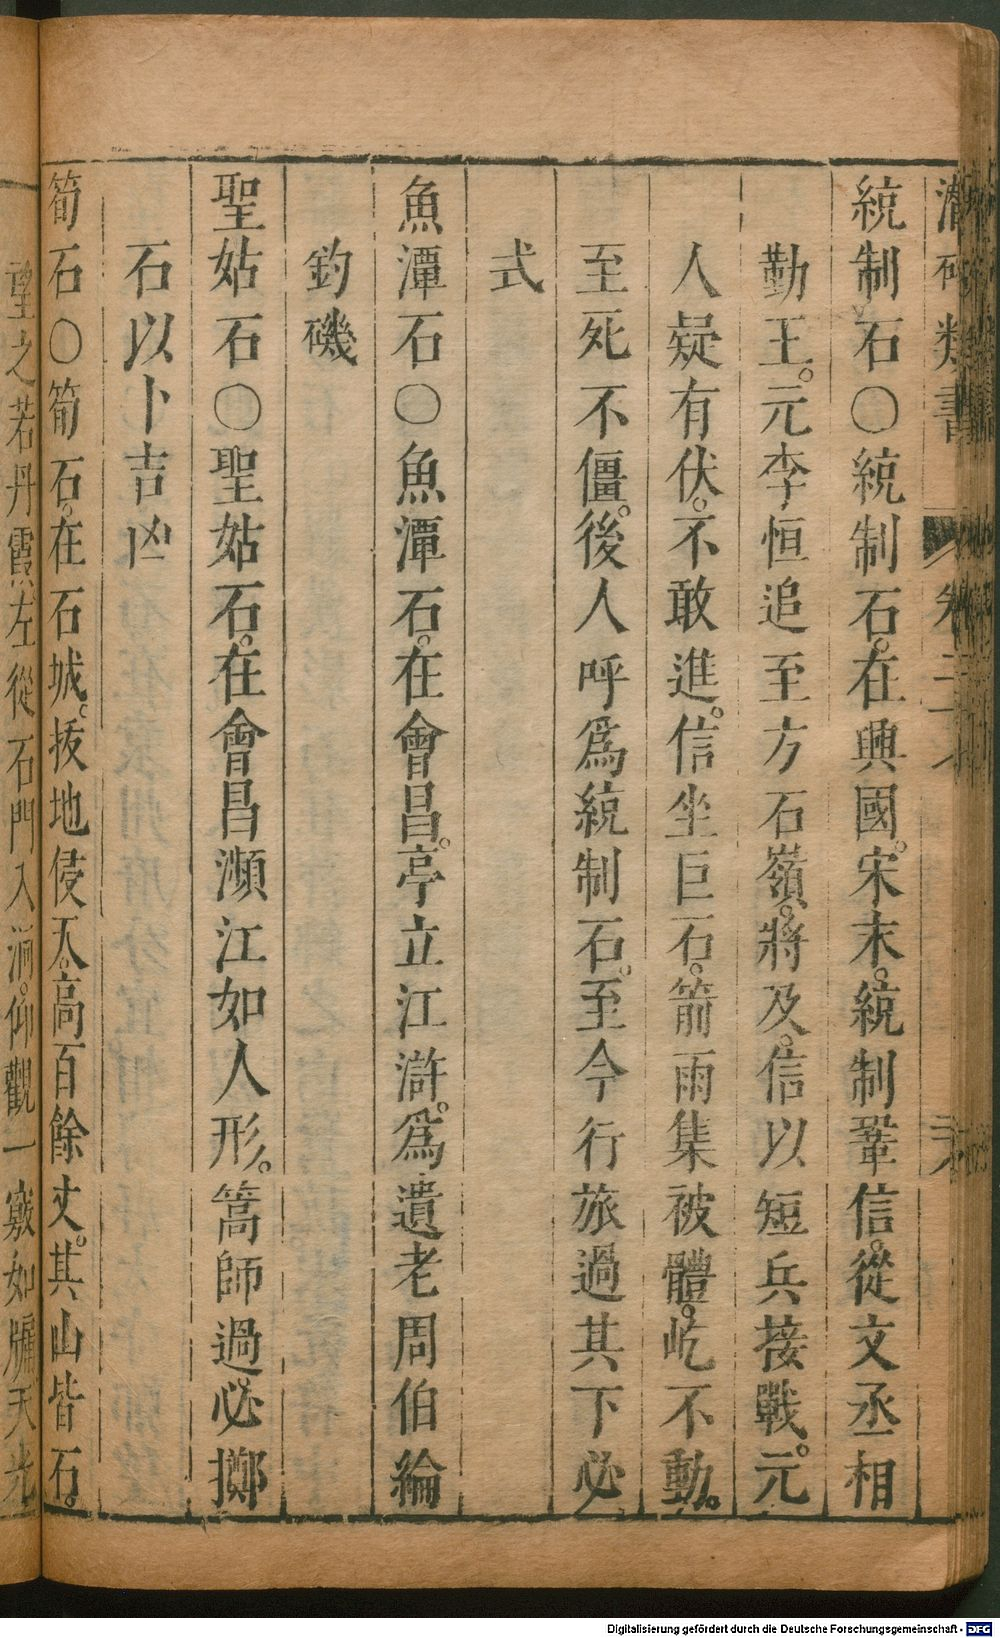 潛確類書 卷二十八 二六
統制石〇統制石。在興國。宋末。統制鞏信。從文丞相
勤王。元李恒追至方石嶺。將及。信以短兵接戰。元
人疑有伏。不敢進。信坐巨石。箭雨集被體。屹不動。
至死不僵。後人呼爲統制石。至今行旅過其下必
式
魚潭石〇魚潭石。在會昌。亭立江滸。爲遺老周伯綸
釣磯
聖姑石〇聖姑石。在會昌瀕江如人形。篙師過必擲
石以卜吉凶
筍石〇筍石。在石城。拔地侵天。高百餘丈。其山皆石。
望之若丹霞。左從石門入洞。仰觀一竅如牖天光
Digitalisierung gefördert durch die Deutsche Forschungsgemeinschaft - DFG